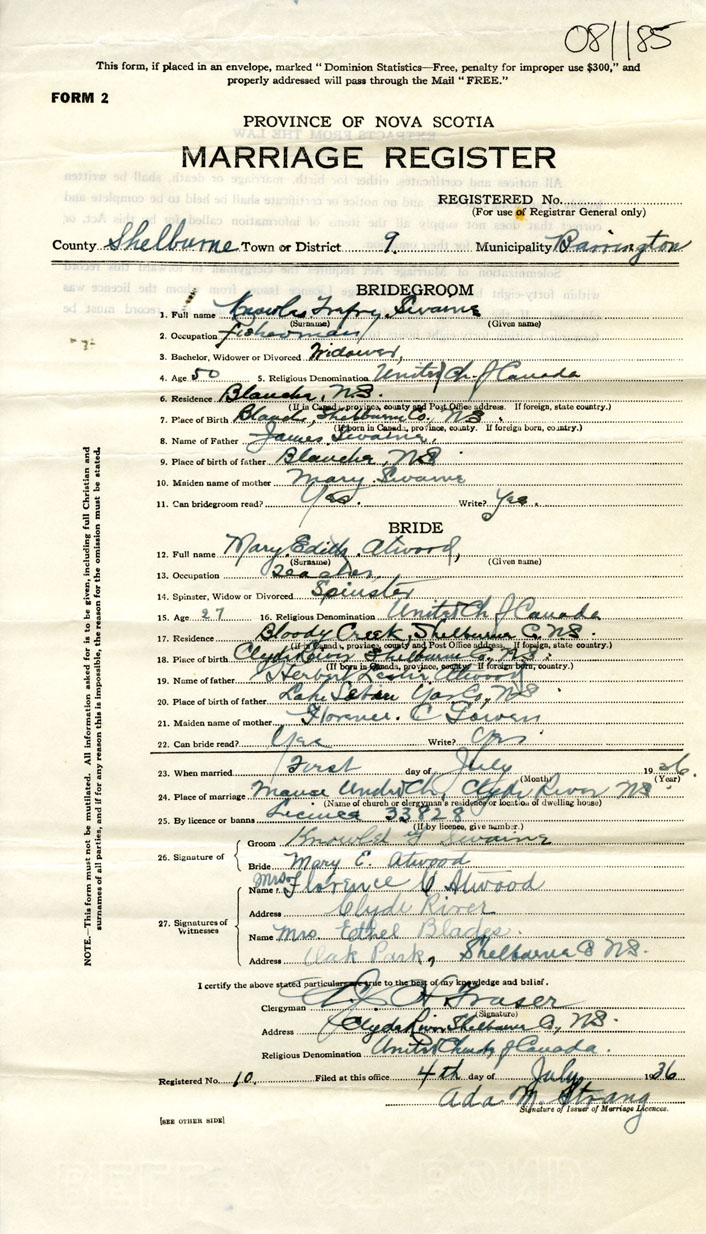 08||85
This form, if placed in an envelope, marked " Dominion Statistics—Free, penalty for improper use $300," and
properly addressed will pass through the Mail " FREE."
FORM 2
PROVINCE OF NOVA SCOTIA
MARRIAGE REGISTER
REGISTERED No.
(For use of Registrar General only)
County Shelburne Town or District 9 Municipality Barrington
BRIDEGROOM
1. Full name Knowles Swaine
(Surname) (Given name)
2. Occupation fisherman
3. Bachelor, Widower or Divorced Widower,
4. Age 50 5. Religious Denomination United Ch. of Canada
6. Residence Blanche, N.S.
(If in Canada, province, county and Post Office address. If foreign, state country.)
7. Place of Birth Blanche, Shelburne Co., N.S.
(If born in Canada, province, county. If foreign born, country.)
8. Name of Father James Swaine,
9. Place of birth of father Blanche, N.S
10. Maiden name of mother Mary Swaine
11. Can bridegroom read? Yes. Write? Yes.
BRIDE
12. Full name Mary Edith Atwood,
(Surname) (Given name)
13. Occupation Teacher,
14. Spinster, Widow or Divorced Spinster
15. Age 27 16. Religious Denomination United Ch of Canada
17. Residence Bloody Creek, Shelburne Co. N.S.
(If in Canada, province, county and Post Office address. If foreign, state country.)
18. Place of birth Clyde River Shelburne Co, N.S.
(If born in Canada, province, county. If foreign born, country.)
19. Name of father Herbert Leslie Atwood
20. Place of birth of father Lake Yar Co, N.S
21. Maiden name of mother Florence. C
22. Can bride read? Yes Write? Yes
23. When married First day of July 1936.
(Month) (Year)
24. Place of marriage Manse United Ch, Clyde River N.S
(Name of church or clergyman's residence or location of dwelling house)
25. By licence or banns Licence 33828
(If by licence, give number.)
26. Signature of
Groom Swaine
Bride Mary E. Atwood
27. Signatures of Witnesses
Name Mrs Florence C Atwood
Address Clyde River
Name Mrs. Ethel Blades.
Address Oak Park, Shelburne Co N.S.
I certify the above stated particulars are true to the best of my knowledge and belief.
Clergyman Fraser
(Signature)
Address Clyde River Shelburne Co., N.S.
Religious Denomination United Church of Canada.
Registered No. 10. Filed at this office 4th day of July 1936
Ada M. Strang
Signature of Issuer of Marriage Licences.
[SEE OTHER SIDE]
NOTE.—This form must not be mutilated. All information asked for is to be given, including full Christian and
surnames of all parties, and if for any reason this is impossible, the reason for the omission must be stated.